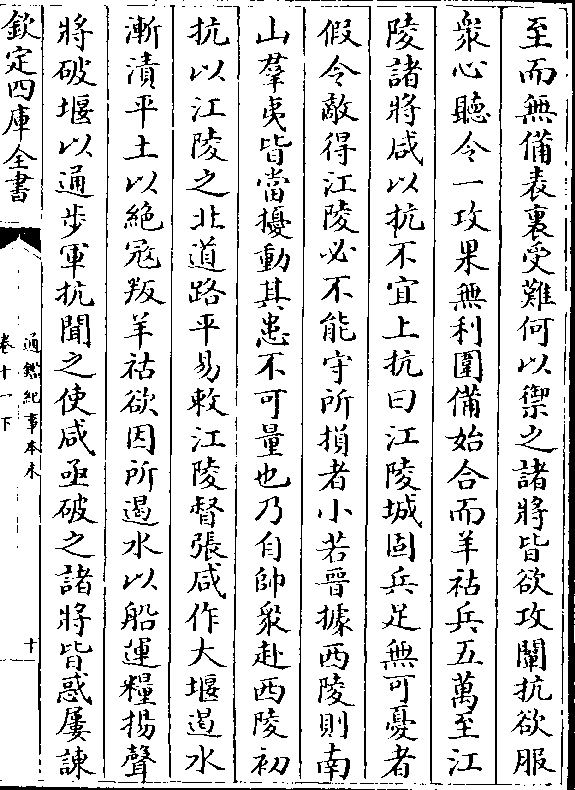 至而無備表裏受難何以禦之諸將皆欲攻闡抗欲服
衆心聽令一攻果無利圍備始合而羊祜兵五萬至江
陵諸將咸以抗不宜上抗曰江陵城固兵足無可憂者
假令敵得江陵必不能守所損者小若晉據西陵則南
山羣夷皆當擾動其患不可量也乃自帥衆赴西陵初
抗以江陵之北道路平易敕江陵督張咸作大堰遏水
漸漬平土以絶冦叛羊祜欲因所遏水以船運糧揚聲
將破堰以通步軍抗聞之使咸亟破之諸將皆惑屢諫
欽定四庫全書
通鑑紀事本末
卷十一下
十